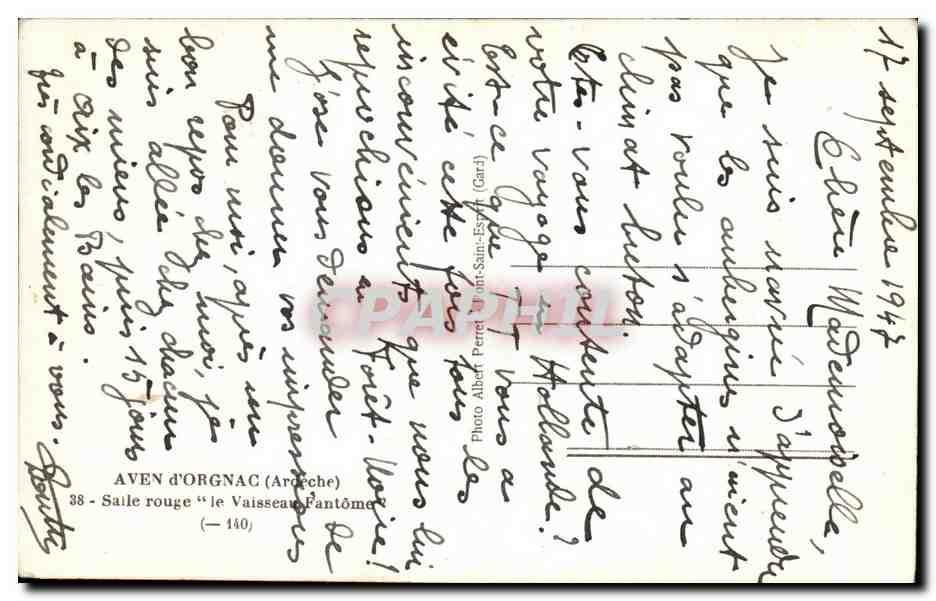 17 septembre 1947
Chère Mademoiselle,
Je suis navrée d'apprendre
que les aubergines n'aient
pas voulu s'adapter au
climat breton.
Etes-vous contente de
votre voyage en Hollande?
Est-ce que T.T vous a
évité cette fois tous les
inconvénients que nous lui
reprochions en Forêt-Noire!
J'ose vous demander de
me donner vos impressions
Pour moi, après un
bon repos chez moi, je
suis allée chez chacun
des miens, puis 15 jours
à Aix les Bains.
Très cordialement à vous.
AVEN d'ORGNAC (Ardèche)
38 - Salle rouge "le Vaisseau Fantôme"
(— 140)
Photo Albert Perret Pont-Saint-Esprit (Gard)
CPAPHIL